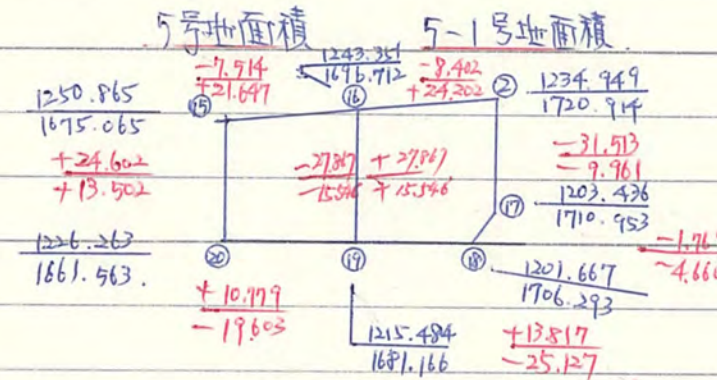 5号地面積 5-1号地面積
1243.351
1696.712
-7.514
+21.647
-8.402
+24.202
1250.865
1675.065
⑮ ⑯ ②
1234.949
1720.914
+24.602
+13.502
-27.867
-15.546
+27.867
+15.546
-31.513
-9.961
⑰
1203.436
1710.953
1226.263
1661.563.
⑳ ⑲ ⑱
-4.666
1201.667
1706.293
+10.779
-19.603
1215.484
1681.166
+13.817
-25.127